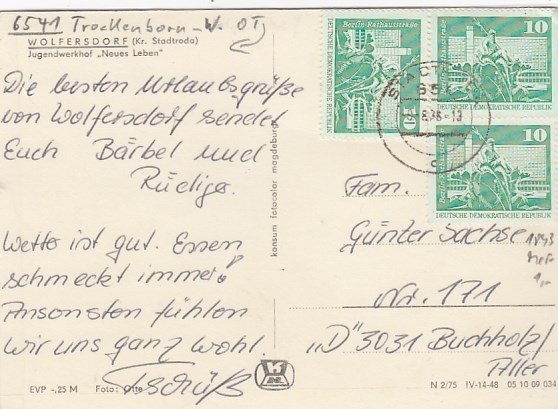 6541 Trockenborn-W. OT
WOLFERSDORF (Kr. Stadtroda)
Jugendwerkhof „Neues Leben“
Die besten Urlaubsgrüße
von Wolfersdorf sendet
Euch Bärbel und
Rüdiger.
Wetter ist gut. Essen
schmeckt immer!
Ansonsten fühlen
wir uns ganz wohl.
Tschüß
EVP -,25 M Foto: Otte
konsum fotocolor magdeburg
Berlin-Rathausstraße
10
DEUTSCHE DEMOKRATISCHE REPUBLIK
Berlin-Rathausstraße
10
DEUTSCHE DEMOKRATISCHE REPUBLIK
Berlin-Rathausstraße
10
DEUTSCHE DEMOKRATISCHE REPUBLIK
Fam.
Günter Sachse
Nr. 171
„D“ 3031 Buchholz/
Aller
N 2/75 IV-14-48 05 10 09 034